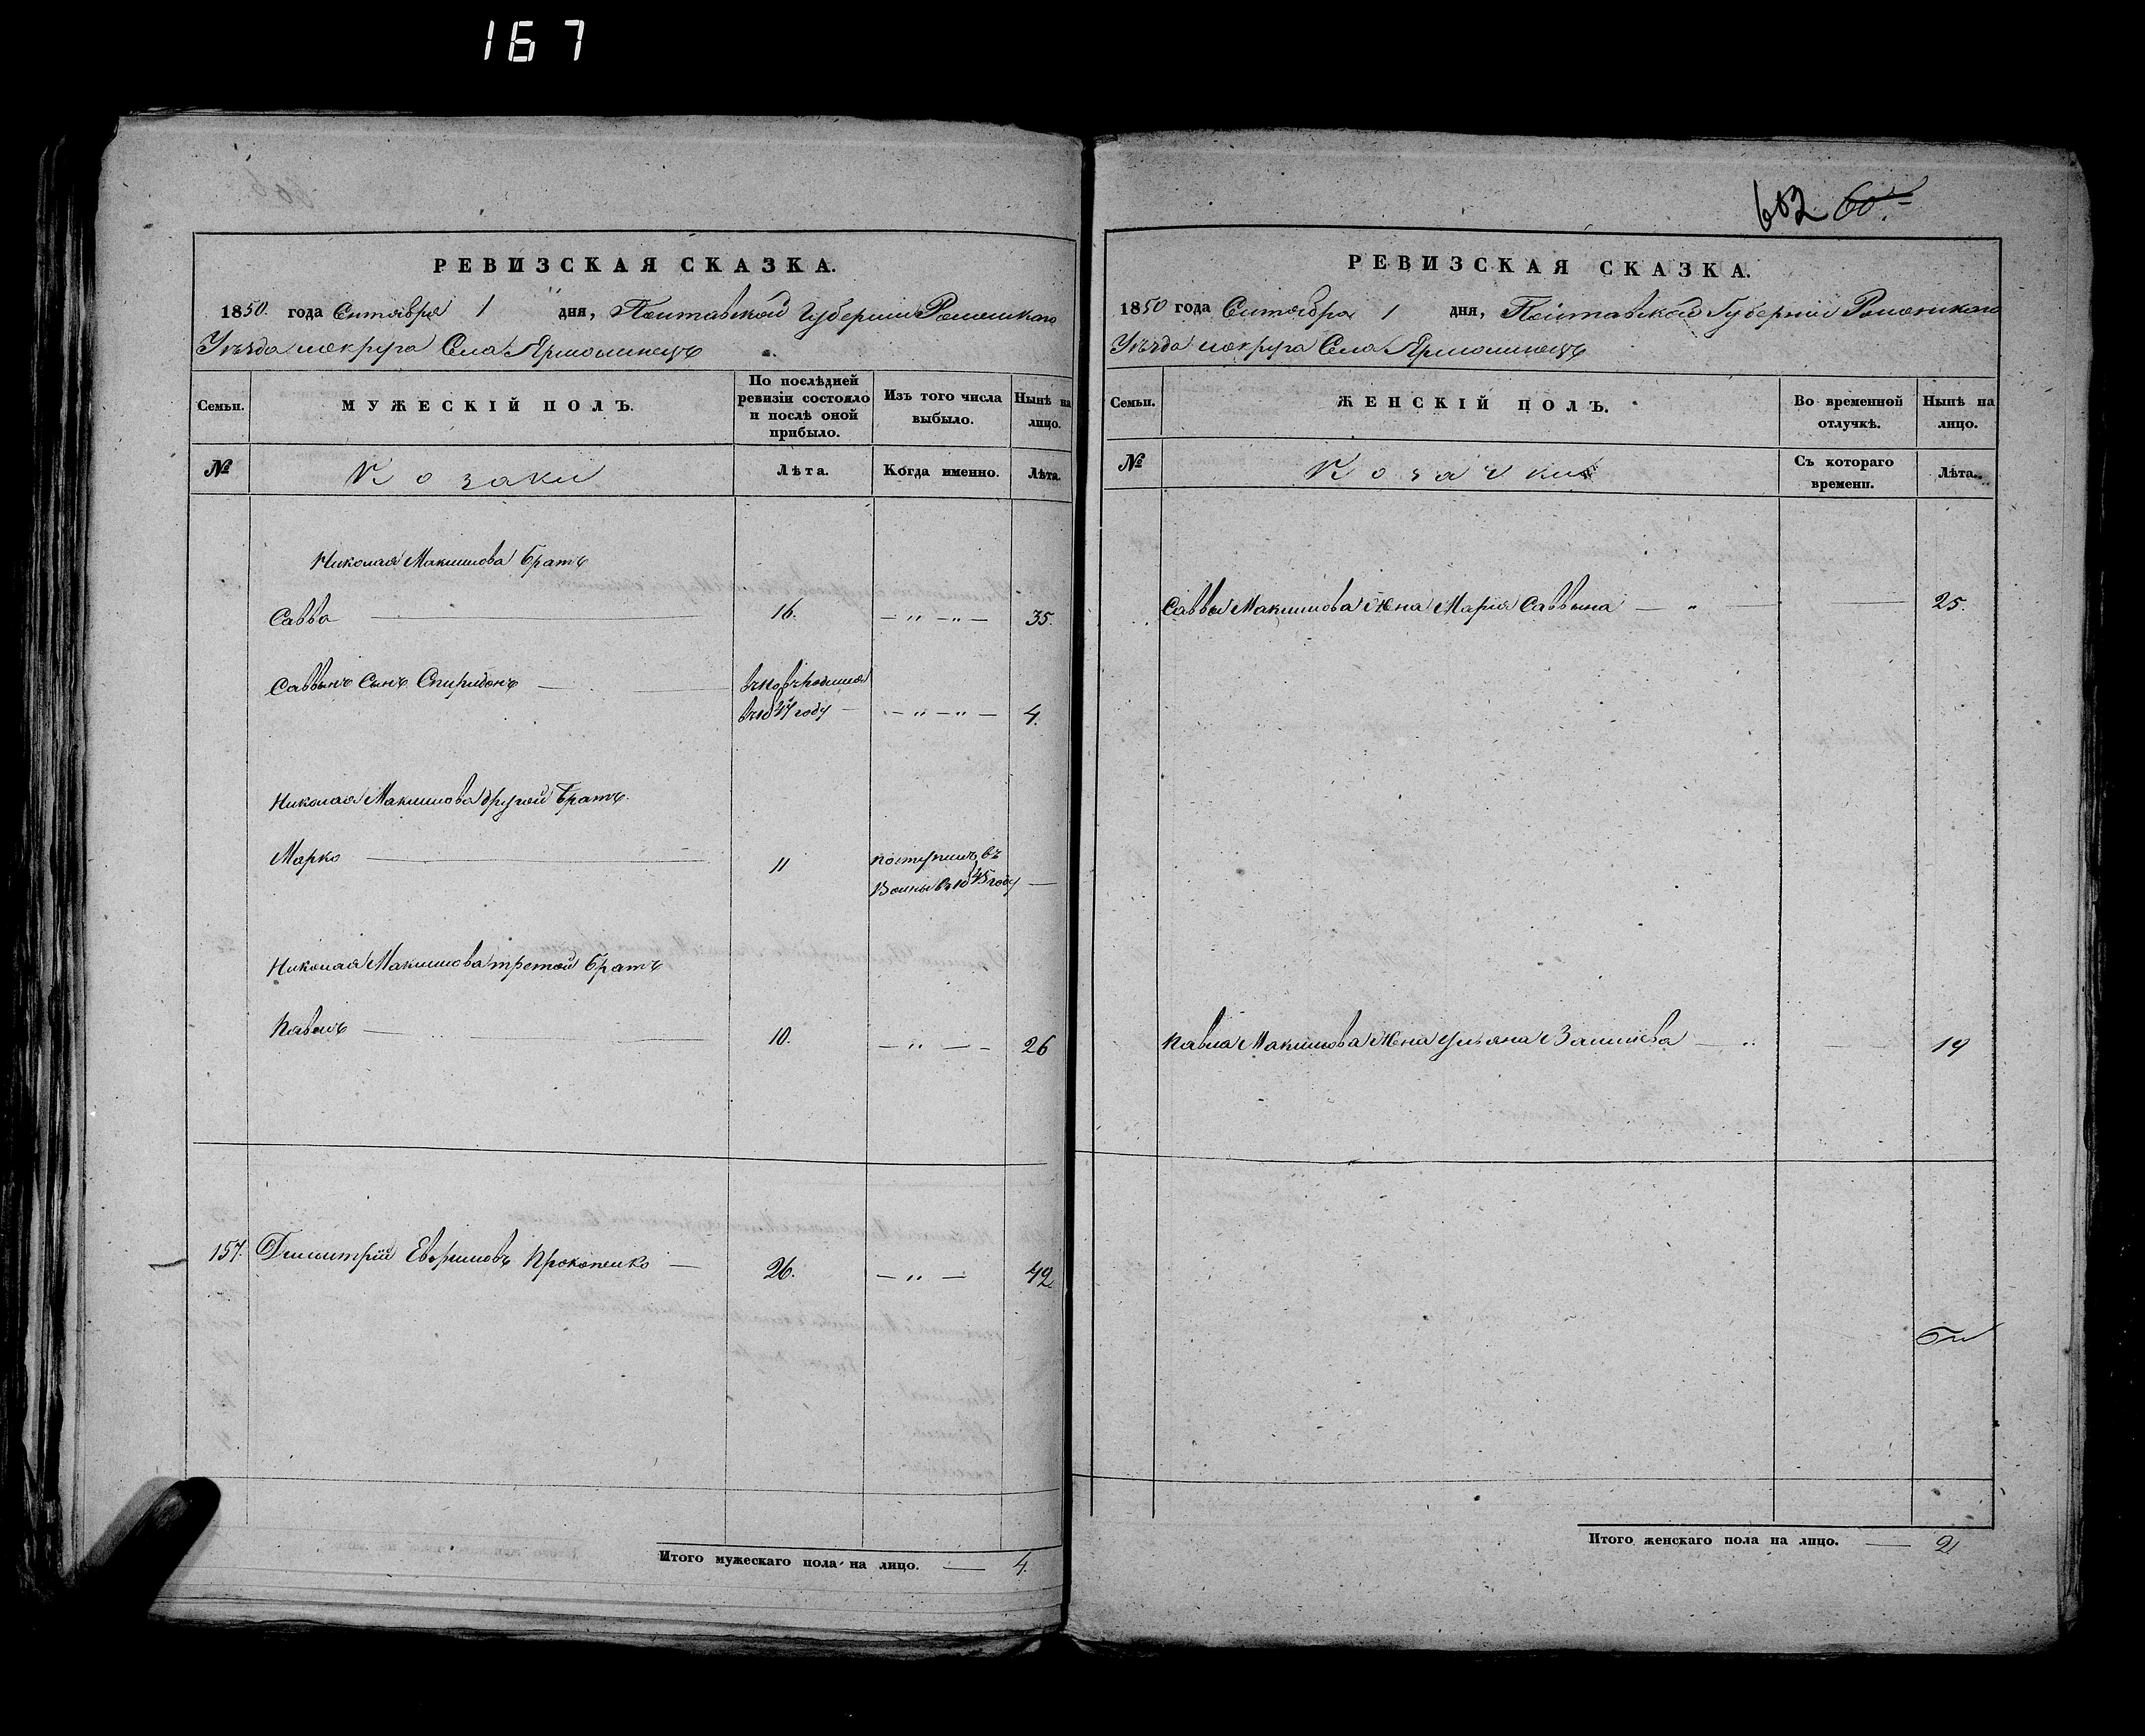 167
РЕВИЗСКАЯ СКАЗКА.
1850. года Сентября 1 дня, Полтавской Губернии Роменского
Уезда и округа Села Ярмолинецъ
Семьи.
МУЖЕСКІЙ ПОЛЪ.
По послѣдней ревизіи состояло и послѣ оной прибыло.
Изъ того числа выбыло.
Нынѣ на лицо.
№
Козаки
Лѣта.
Когда именно.
Лѣта.
Николая Максимова братъ
Савва 16. 35.
Саввинъ Сынъ Спиридонъ
въ 1847 году 4.
Николая Максимова другой братъ.
Марко 11 поступилъ въ
Воины въ 1845 году
Николая Максимова третой братъ
Павелъ 10. 26
157. Димитрій Евфимовъ Прокопенко 26. 42
Итого мужескаго пола на лицо. 4.
602
РЕВИЗСКАЯ СКАЗКА.
1850 года Сентября 1 дня, Полтавской Губерніи Роменского
Уезда и округа Села Ярмолинецъ
Семьи.
ЖЕНСКІЙ ПОЛЪ.
Во временной отлучкѣ.
Нынѣ на лицо.
№
Козачки
Съ котораго времени.
Лѣта.
Саввы Максимова жена Марія Саввина 25.
Павла Максимова жена Ульяна 19
Итого женскаго пола на лицо. 2